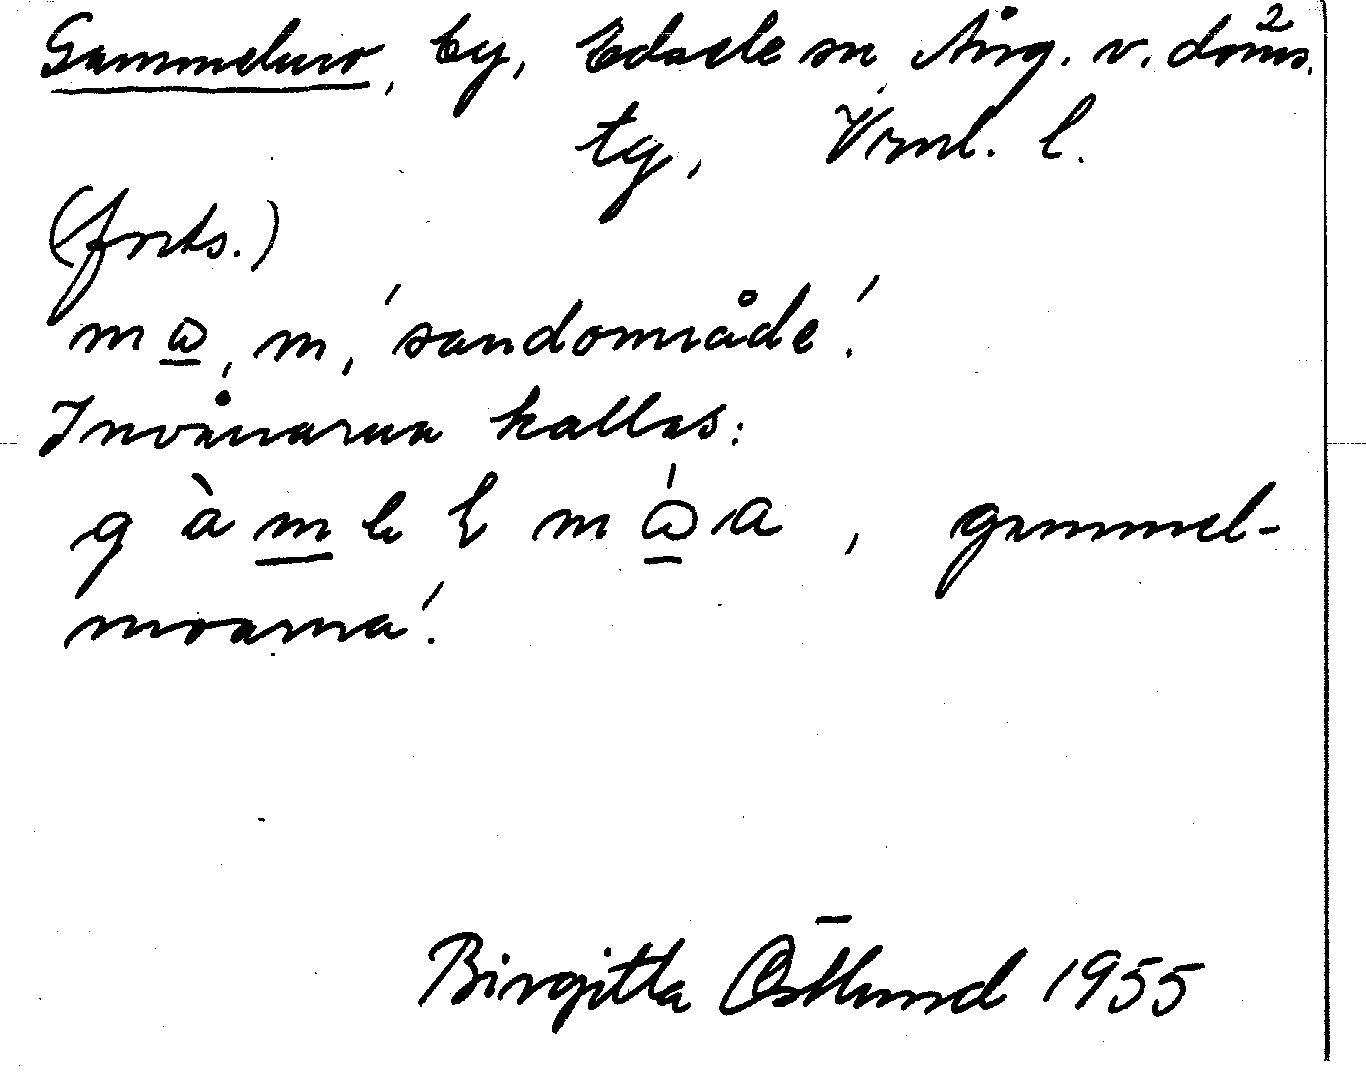 Gammelmo, by, Edsele sn Ång. v. doms. 2
tg, Vrml. l.
(forts.)
m ω, m, 'sandområde'.
Invånarna kallas:
g à m le l m ώ a, gammel-
moarna'.
Birgitta Östlund 1955